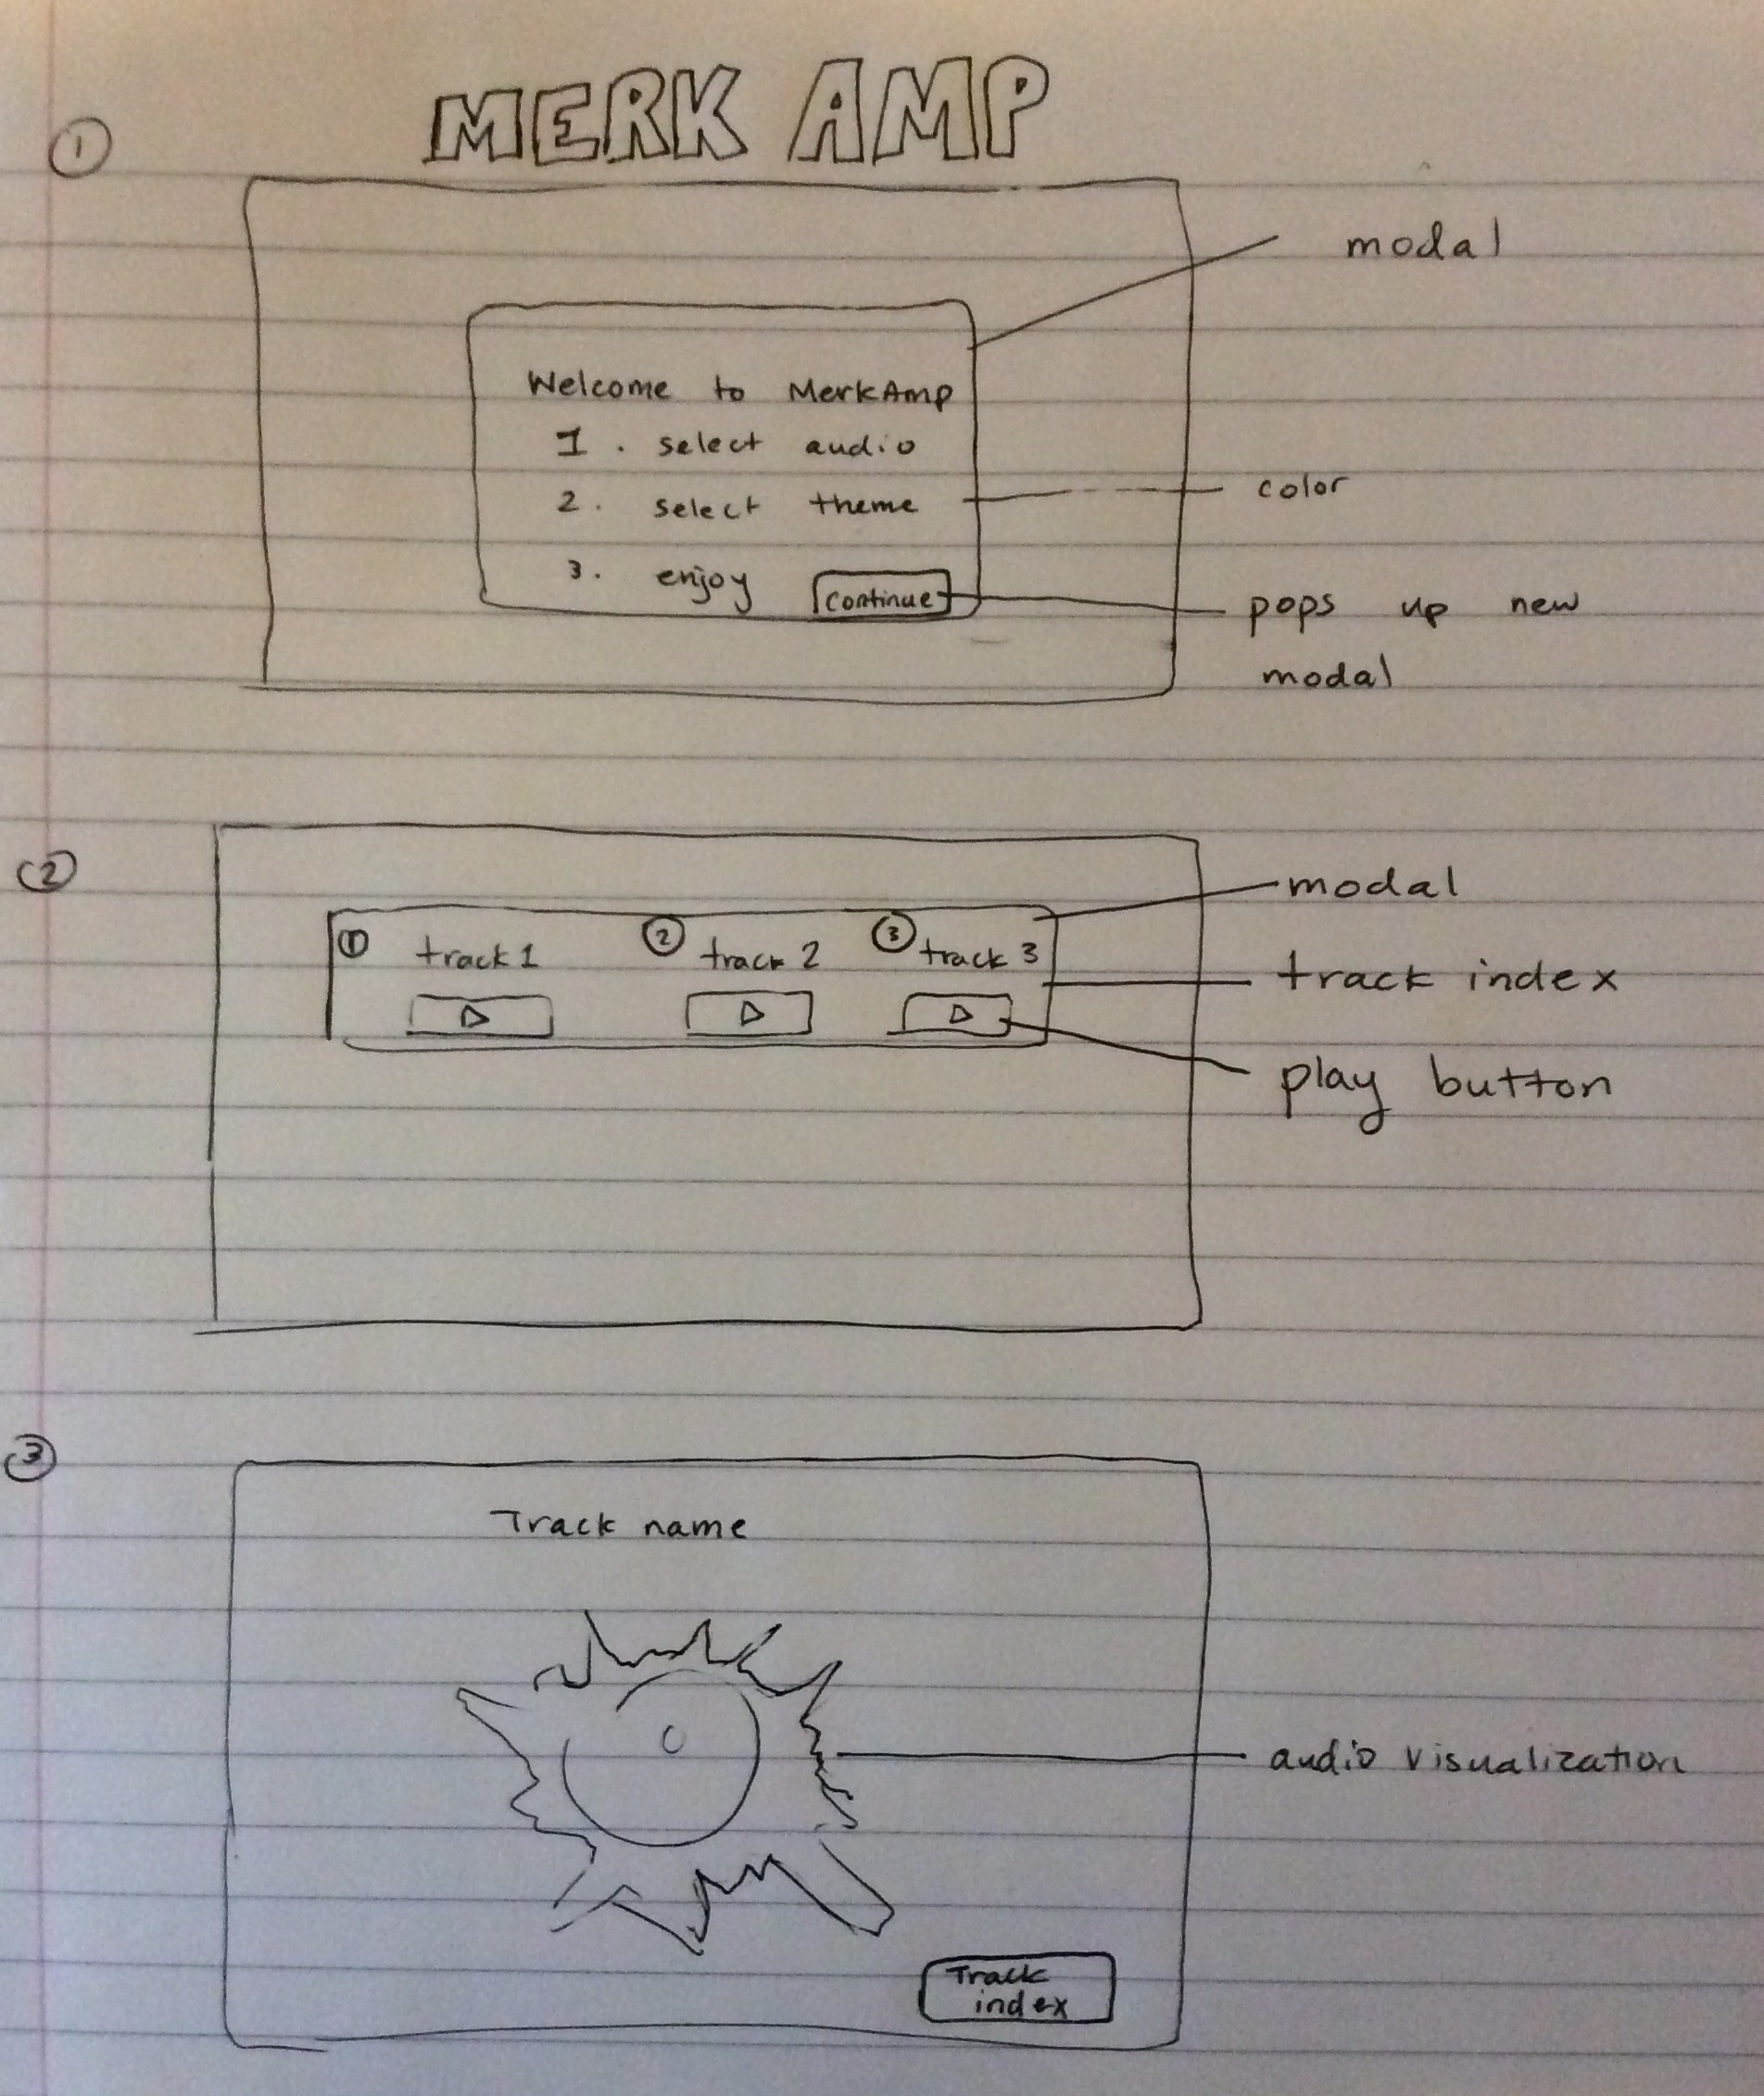 MERK AMP
①
modal
Welcome to MerkAmp
1. select audio
2. select theme
color
3. enjoy
continue
pops up new
modal
②
modal
① track 1 ② track 2 ③ track 3
track index
play button
③
Track name
audio visualization
Track
index